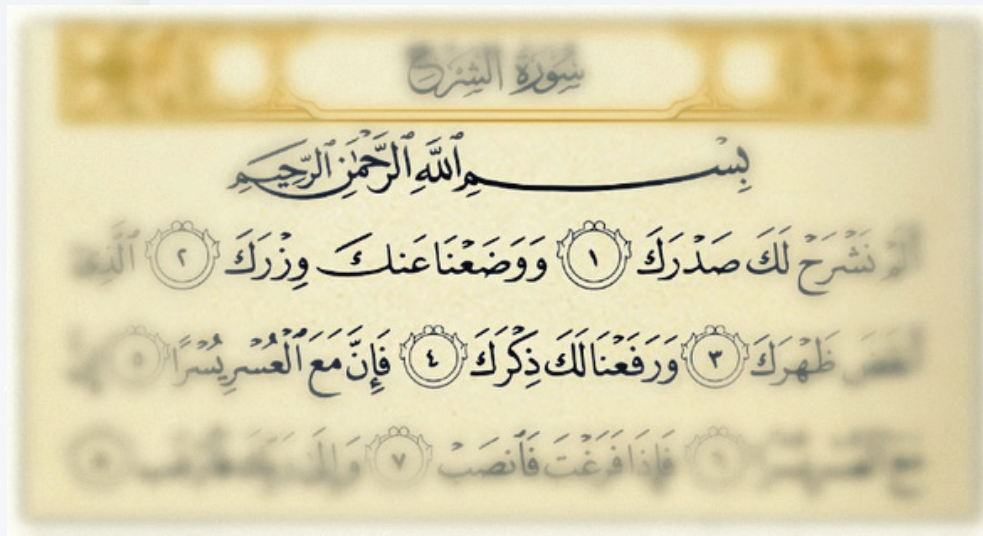 سُورَةُ الشَّرْحِ
بِسْمِ ٱللَّهِ ٱلرَّحْمَٰنِ ٱلرَّحِيمِ
أَلَمْ نَشْرَحْ لَكَ صَدْرَكَ ١ وَوَضَعْنَا عَنكَ وِزْرَكَ ٢
ظَهْرَكَ ٣ وَرَفَعْنَا لَكَ ذِكْرَكَ ٤ فَإِنَّ مَعَ ٱلْعُسْرِ يُسْرًا ٥
فَإِذَا فَرَغْتَ فَٱنصَبْ ٧